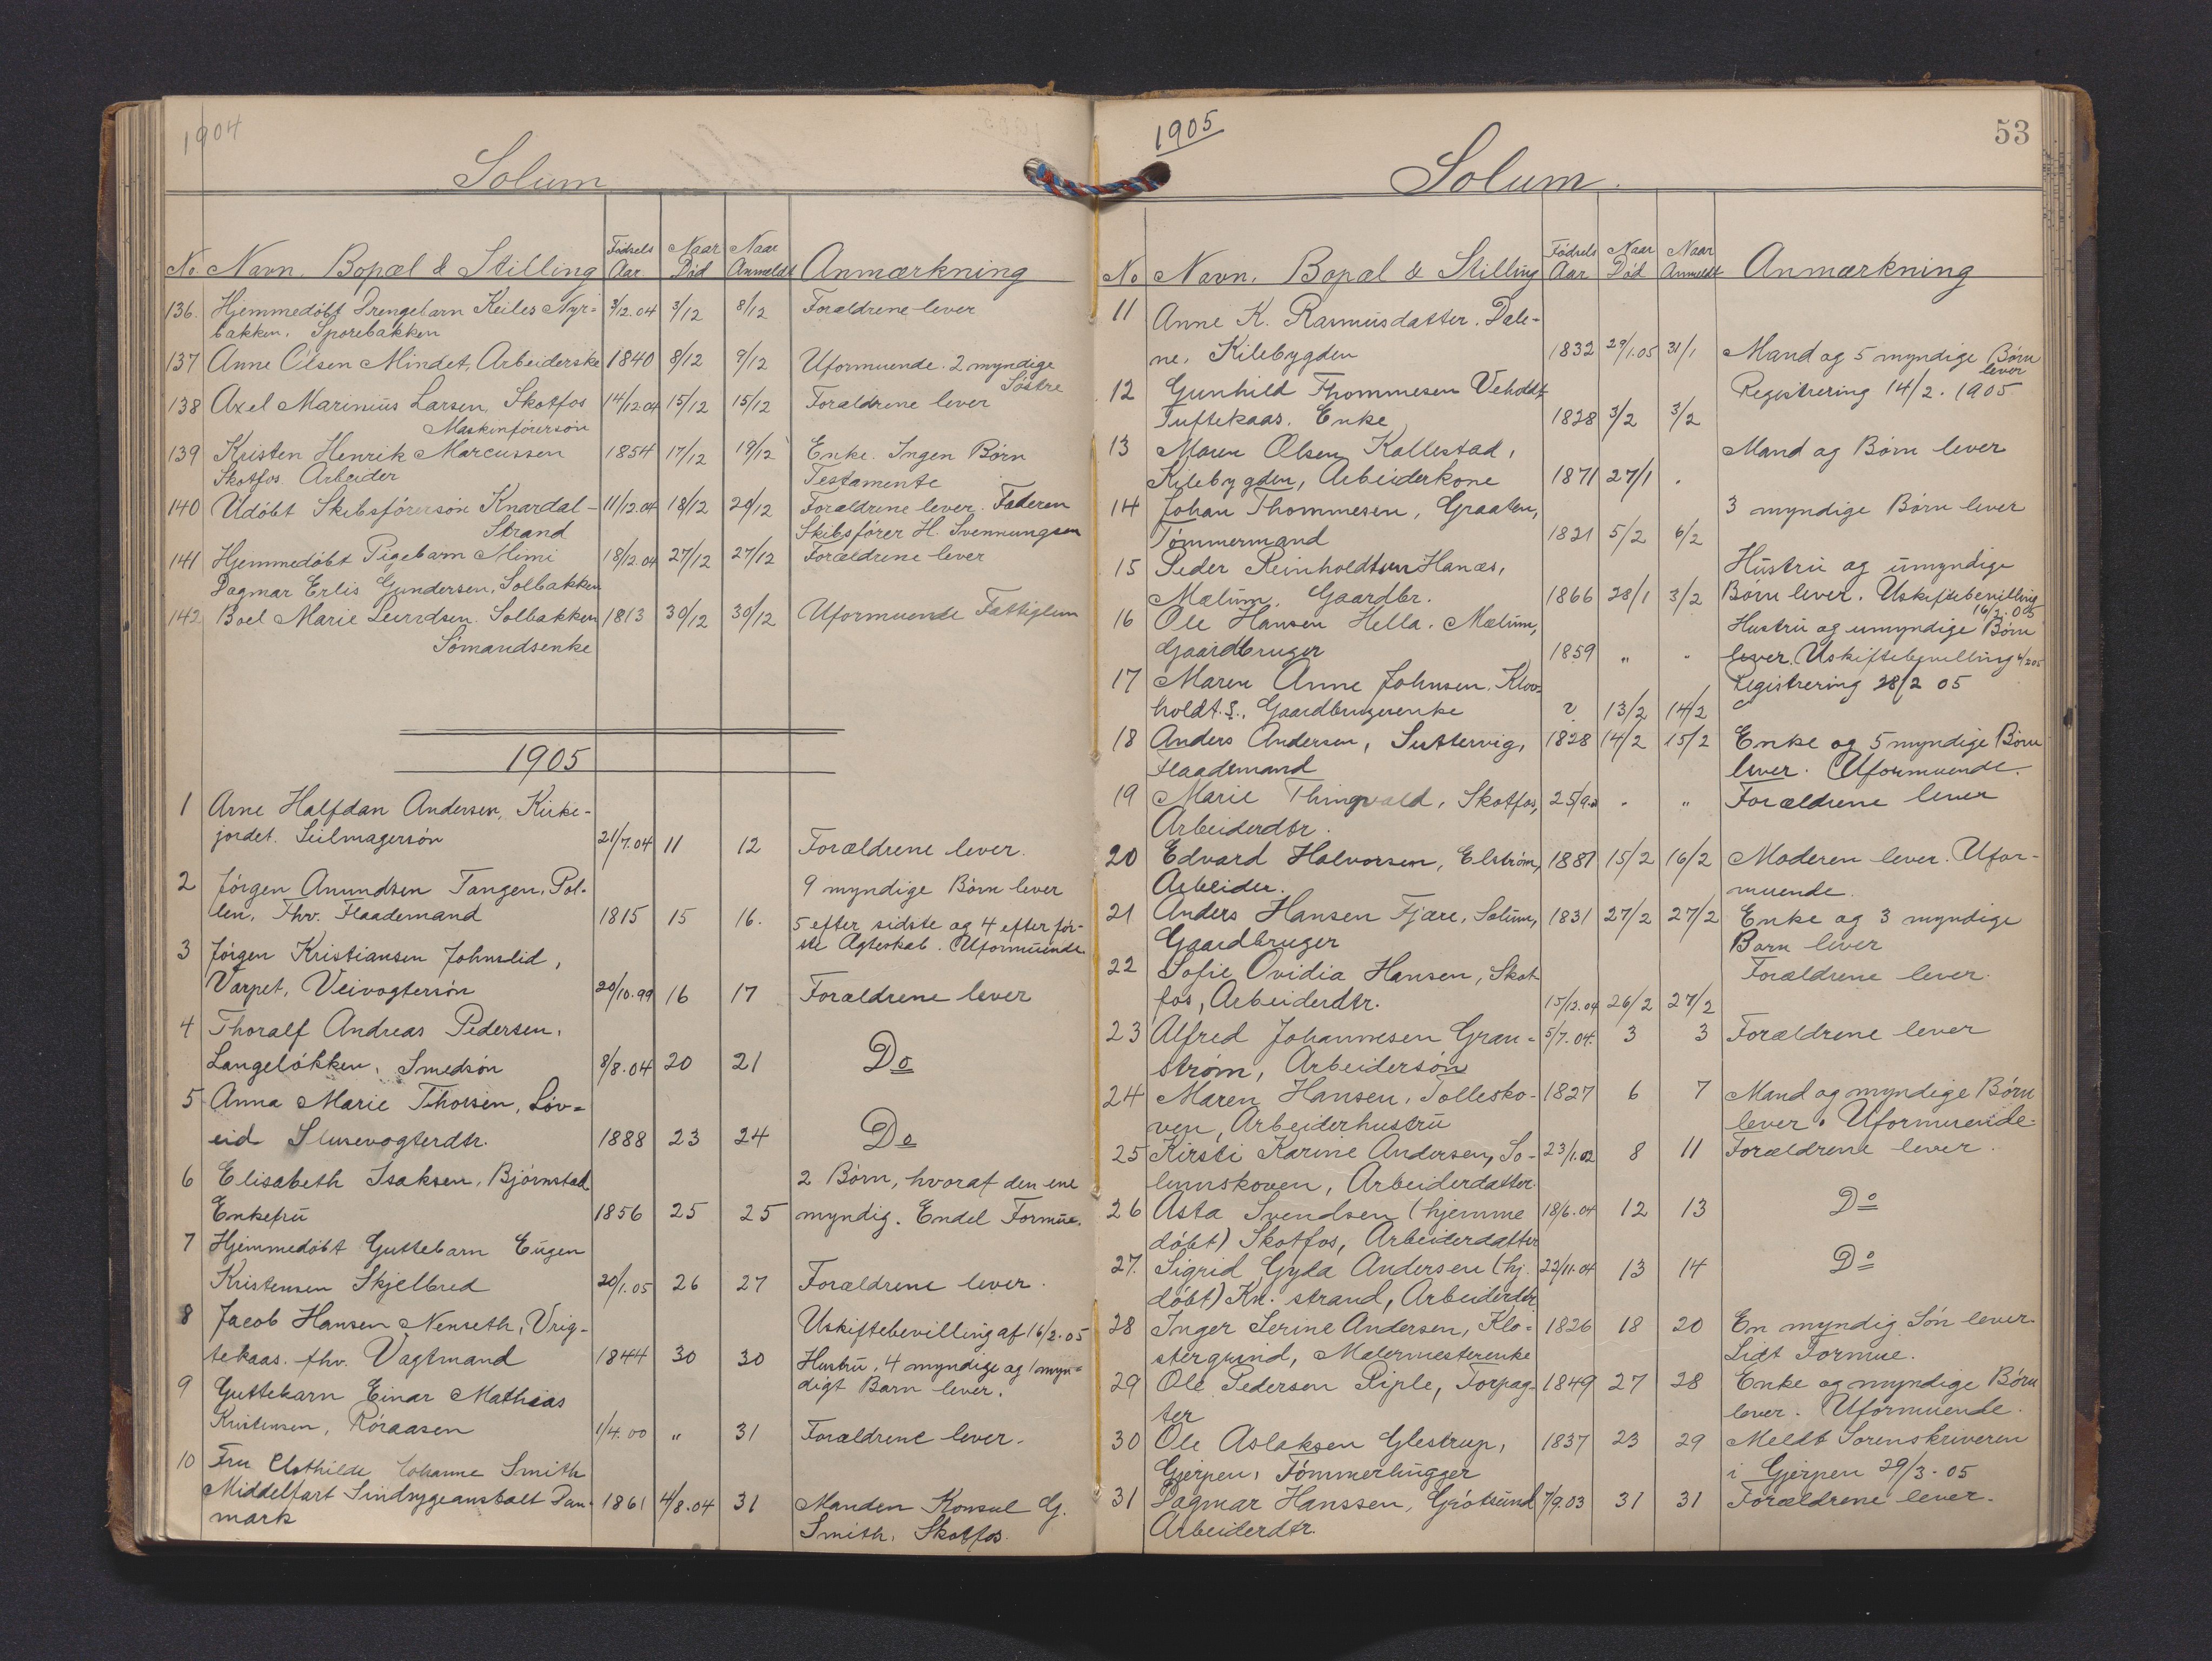 1904
Solum
No. Navn. Bopæl & Stilling Fødsels Aar Naar Død Naar Anmeldt Anmærkning
136. Hjemmedøbt Drengebarn Keiles Nyr= 3/12.04 3/12 8/12 Forældrene lever
bakken. Sporebakken
137 Anne Olsen Mindet, Arbeiderske 1840 8/12 9/12 Uformuende. 2 myndige
Søstre
138 Axel Marinius Larsen, Skotfos 14/12.04 15/12 15/12 Forældrene lever
Maskinførersøn
139 Kristen Henrik Marcussen 1854 17/12 19/12 Enke. Ingen Børn
Skotfos. Arbeider Testamente
140 Udøbt Skibsførersøn Knardal- 11/12.04 18/12 20/12 Forældrene lever. Faderen
Strand Skibsfører H. Svennungsen
141 Hjemmedøbt Pigebarn Mimi 18/12.04 27/12 27/12 Forældrene lever
Dagmar Erlis Gundersen, Solbakken
142 Boel Marie Solbakken 1813 30/12 30/12 Uformuende Fattiglem
Sømandsenke
1905
1 Arne Halfdan Andersen, Kirke-
jordet. Seilmagersøn 21/7.04 11 12 Forældrene lever.
2 Jørgen Anundsen Tangen, Pol- 9 myndige Børn lever
len, Thv. Flaademand 1815 15 16. 5 efter sidste og 4 efter før-
ste Ægteskab. Uformuende
3 Jørgen Kristiansen Johnslid,
Varpet, Veivogtersøn 20/10.99 16 17 Forældrene lever
4 Thoralf Andreas Pedersen,
Langeløkken, Smedsøn 8/8.04 20 21 Do
5 Anna Marie Thorsen, Løv=
eid Slusevogterdtr. 1888 23 24 Do
6 Elisabeth Isaksen, Bjørnstad 2 Børn, hvoraf den ene
Enkefru 1856 25 25 myndig. Endel Formue.
7 Hjemmedøbt Guttebarn Eugen
Kristensen Skjelbred 20/1.05 26 27 Forældrene lever.
8 Jacob Hansen Nenseth, Vrig- Uskiftebevilling af 16/2.05
tekaas. fhv. Vagtmand 1844 30 30 Hustru, 4 myndige og 1 myn=
digt Barn lever.
9 Guttebarn Einar Mathias
Kristensen, Røraasen 1/4.00 " 31 Forældrene lever.
10 Fru Clothilde Johanne Smith
Middelfart Sindsygeanstalt Dan- 1861 4/8.04 31 Manden Konsul G.
mark Smith, Skotfos.
1905
53
Solum.
No Navn, Bopæl & Stilling Fødsels Aar Naar Død Naar Anmeldt Anmærkning
11 Anne K. Rasmusdatter. Dale-
ne, Kilebygden 1832 29/1.05 31/1 Mand og 5 myndige Børn
lever
12 Gunhild Thommesen Veholdt Registrering 14/2. 1905.
Tuftekaas. Enke 1828 3/2 3/2
13 Maren Olsen Kallestad, Mand og Børn lever
Kilebygden, Arbeiderkone 1871 27/1 .
14 Johan Thommesen, Graaten, 3 myndige Børn lever
Tømmermand 1821 5/2 6/2
15 Peder Reinholdtsen Hanæs, Hustru og umyndige
Mælum, Gaardbr. 1866 28/1 3/2 Børn lever. Uskiftebevilling
16/2.05
16 Ole Hansen Hella. Mælum, Hustru og umyndige Børn
Gaardbruger 1859 " " lever. Uskiftebevilling 4/2 05
17 Maren Anne Johnsen, Klov= Registrering 28/2 05
holdt. S., Gaardbrugerenke ? 13/2 14/2
18 Anders Andersen, Suttervig, 1828 14/2 15/2 Enke og 5 myndige Børn
Flaademand lever. Uformuende.
19 Marie Thingvald, Skotfos, " " Forældrene lever
Arbeiderdtr.
20 Edvard Halvorsen, Elstrøm, 1881 15/2 16/2 Moderen lever. Ufor-
Arbeider. muende.
21 Anders Hansen Fjære, Solum, 1831 27/2 27/2 Enke og 3 myndige
Gaardbruger Barn lever
22 Sofie Ovidia Hansen, Skot Forældrene lever.
fos, Arbeiderdtr. 15/12.04 26/2 27/2
23 Alfred Johannesen Gran- 5/7.04. 3 3 Forældrene lever
strøm, Arbeidersøn
24 Maren Hansen, Tollesko- 1827 6 7 Mand og myndige Børn
ven, Arbeiderhustru lever. Uformuende.
25 Kirsti Karine Andersen, So- 23/1.02 8 11 Forældrene lever.
lumskoven, Arbeiderdatter.
26 Asta Svendsen (hjemme 18/6.04 12 13 Do
døbt) Skotfos, Arbeiderdatter
27. Sigrid Gyda Andersen (hj. 22/11.04 13 14 Do
døbt) Kn. strand, Arbeiderdtr
28 Inger Serine Andersen, Klo- 1826 18 20 En myndig Søn lever.
stergrund, Malermesterenke Lidt Formue.
29 Ole Pedersen Riple, Forpag- 1849 27 28 Enke og myndige Børn
ter lever. Uformuende.
30 Ole Aslaksen Glestrup, 1837 23 29 Meldt Sorenskriveren
Gjerpen, Tømmerhugger i Gjerpen 29/3.05
31 Dagmar Hanssen, Grøtsund 7/9.03 31 31 Forældrene lever.
Arbeiderdtr.